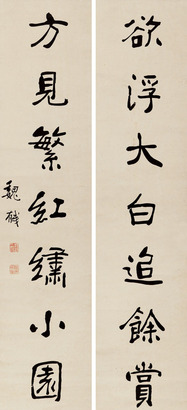 欲浮大白追餘賞
方見繁紅繡小園
魏戫